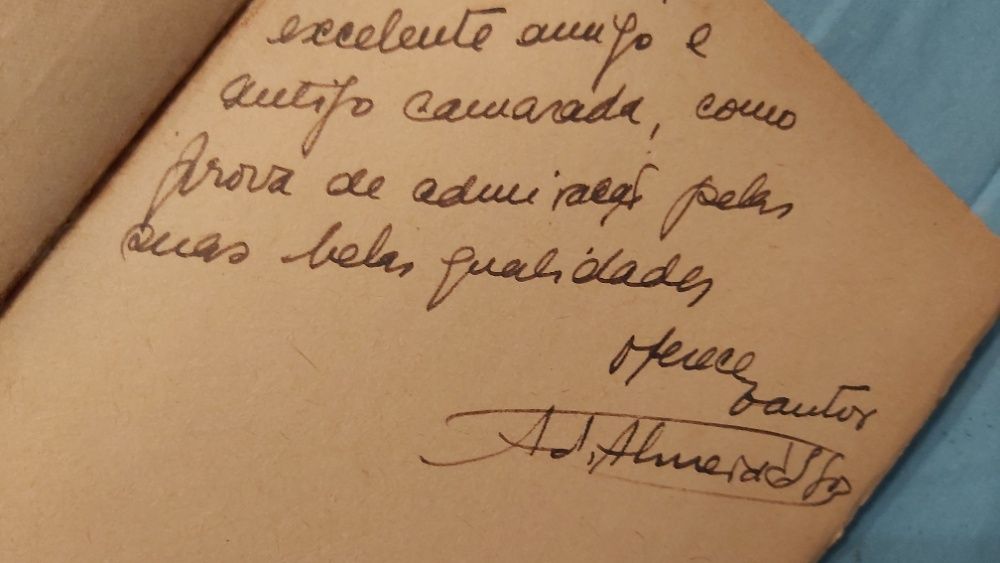 excelente amigo e
antigo camarada, como
prova de admiração pelas
suas belas qualidades
oferece
o autor
Ad. Almeida